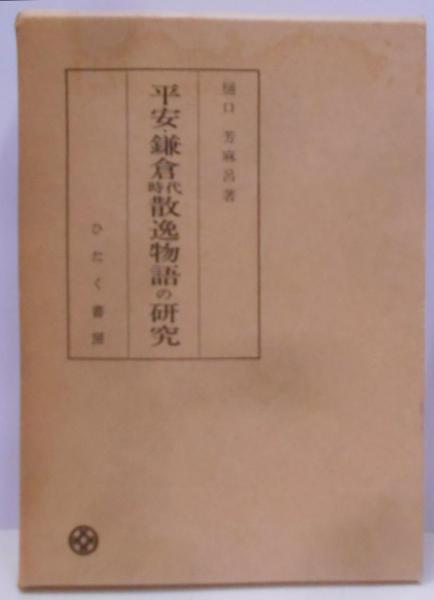 樋口 芳麻呂著
平安・鎌倉時代散逸物語の研究
ひたく書房